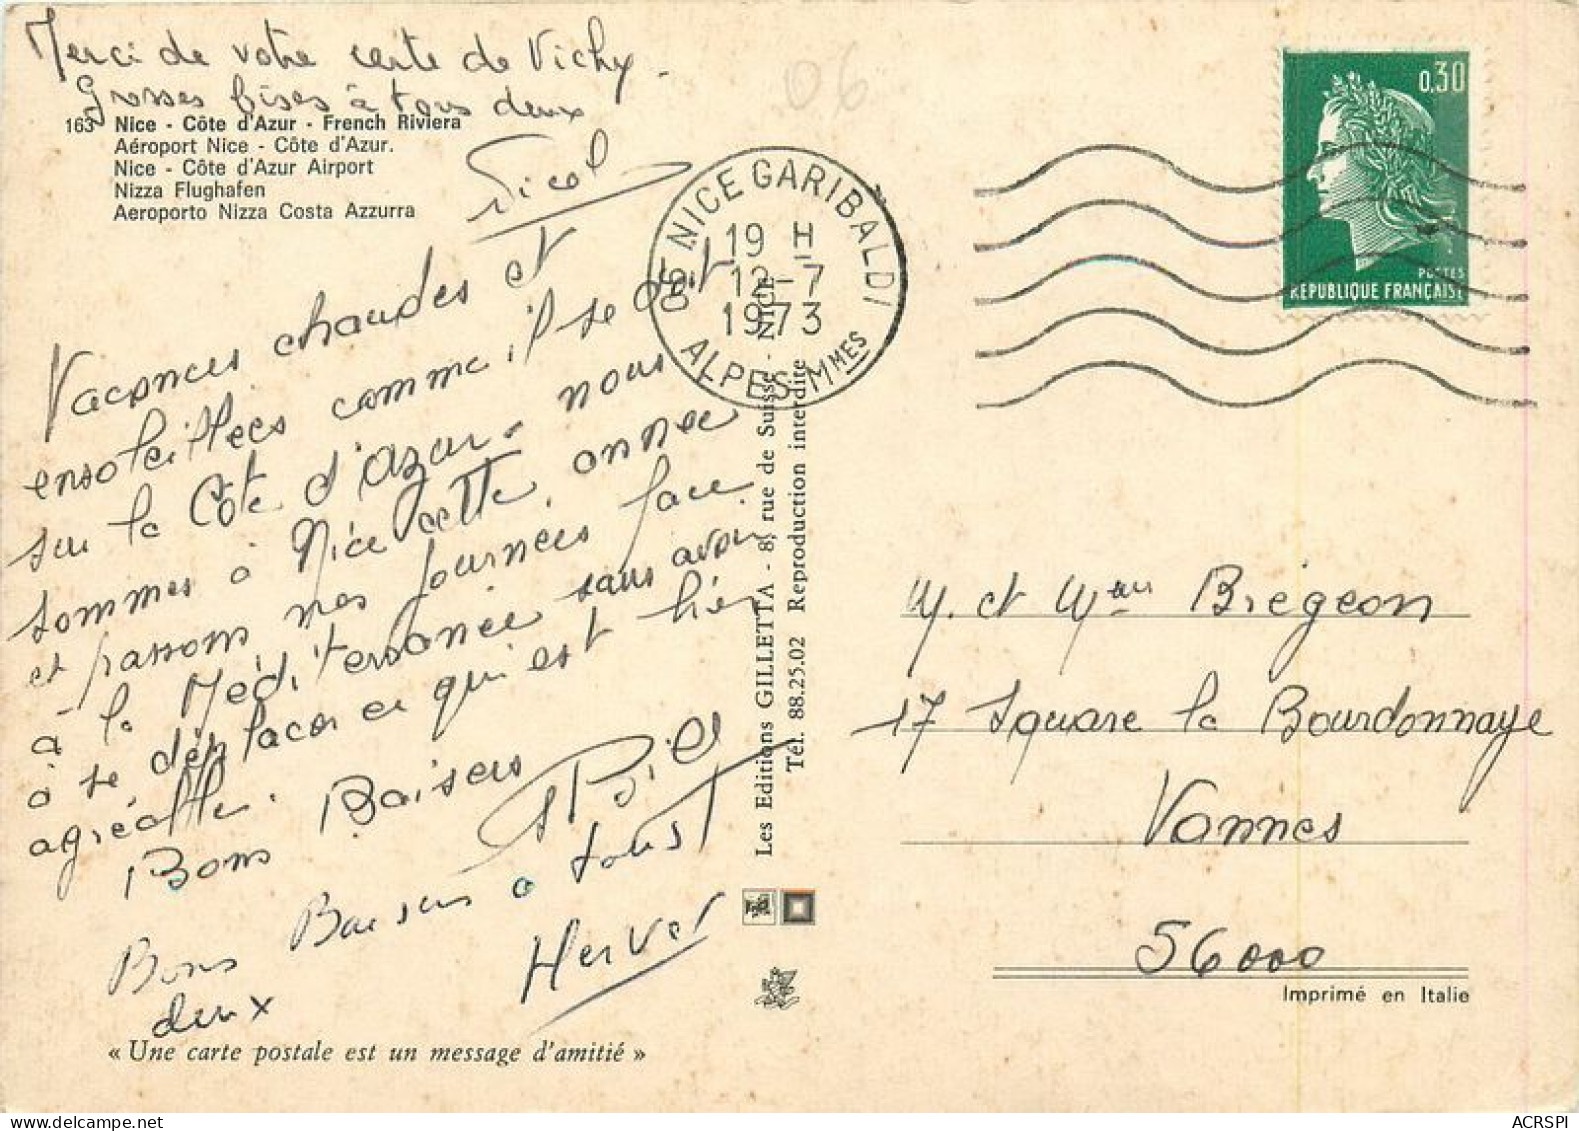 Merci de votre carte de Vichy.
Grosses bises à tous deux
163 Nice - Côte d'Azur - French Riviera
Aéroport Nice - Côte d'Azur.
Nice - Côte d'Azur Airport
Nizza Flughafen
Aeroporto Nizza Costa Azzurra
Vacances chaudes et
ensoleillées comme il se doit
sur la Côte d'Azur. nous
sommes à Nice cette année
et passons nos journées face
à la Méditerranée sans avoir
à se déplacer ce qui est bien
agréable.
Bons Baisers
Bons Baisers à tous
deux
Herver
« Une carte postale est un message d'amitié »
Les Editions GILLETTA - 8, rue de Suisse - NICE
Tél. 88.25.02 Reproduction interdite
06
06 NICE GARIBALDI
19 H
12-7
1973
ALPES-MMES
0,30
POSTES
REPUBLIQUE FRANÇAISE
M. et Mme Bregeon
17 Square la Bourdonnaye
Vannes
56000
Imprimé en Italie
ACRSPI